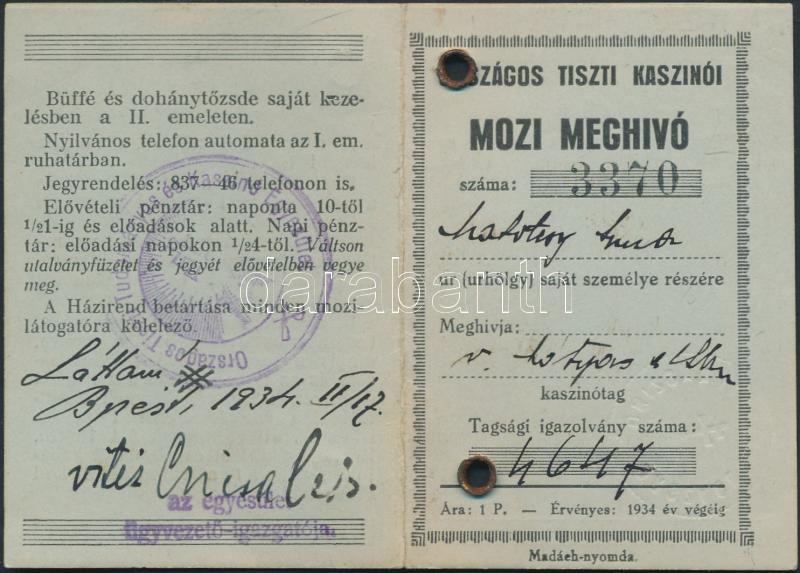 Büffé és dohánytőzsde saját keze-
lésben a II. emeleten.
Nyilvános telefon automata az I. em.
ruhatárban.
Jegyrendelés: 837-46 telefonon is.
Elővételi pénztár: naponta 10-től
1/21-ig és előadások alatt. Napi pénz-
tár: előadási napokon 1/24-től. Váltson
utalványfüzetet és jegyét elővételben vegye
meg.
A Házirend betartása minden mozi-
látogatóra kölelező.
Országos
Láttam
Bpest, 1934. II/17.
vitéz
az egyesület
ügyvezető-igazgatója.
SZÁGOS TISZTI KASZINÓI
MOZI MEGHIVÓ
száma: 3370
úr (urhölgy) saját személye részére
Meghivja:
v.
kaszinótag
Tagsági igazolvány száma:
4647
Ára: 1 P. — Érvényes: 1934 év végéig
Madách-nyomda.
darabanth